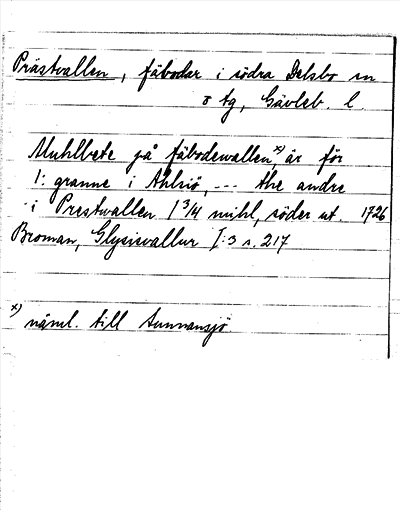 Prästvallen, fäbodar i södra Delsbo sn
o tg, Gävleb. l.
Muhlbete på fäbodewallen x) är för
1: granne i Ahlsiö, --- the andre
i Prestwallen 1 3/4 mihl, söder ut. 1726
Broman, Glysisvallur I:3 s. 217
x) näml. till Sunnansjö.